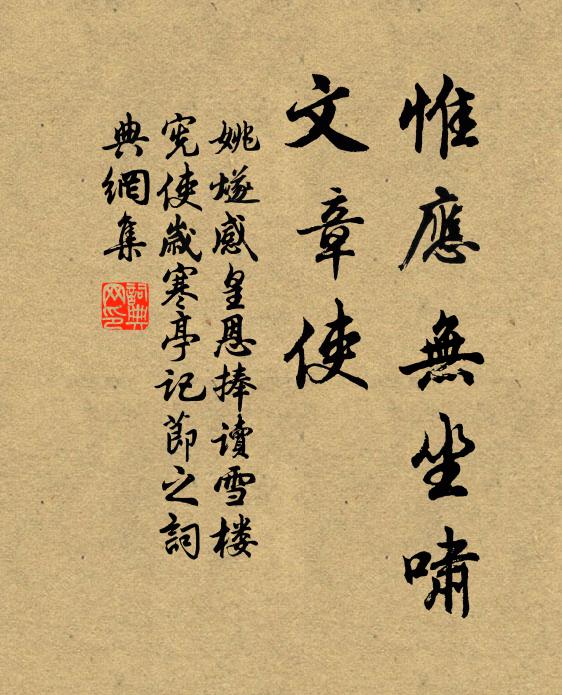 惟應無坐嘯
文章使
姚燧感皇恩捧读雪楼
宪使歲寒亭记節之詞
典網集
詞典網印